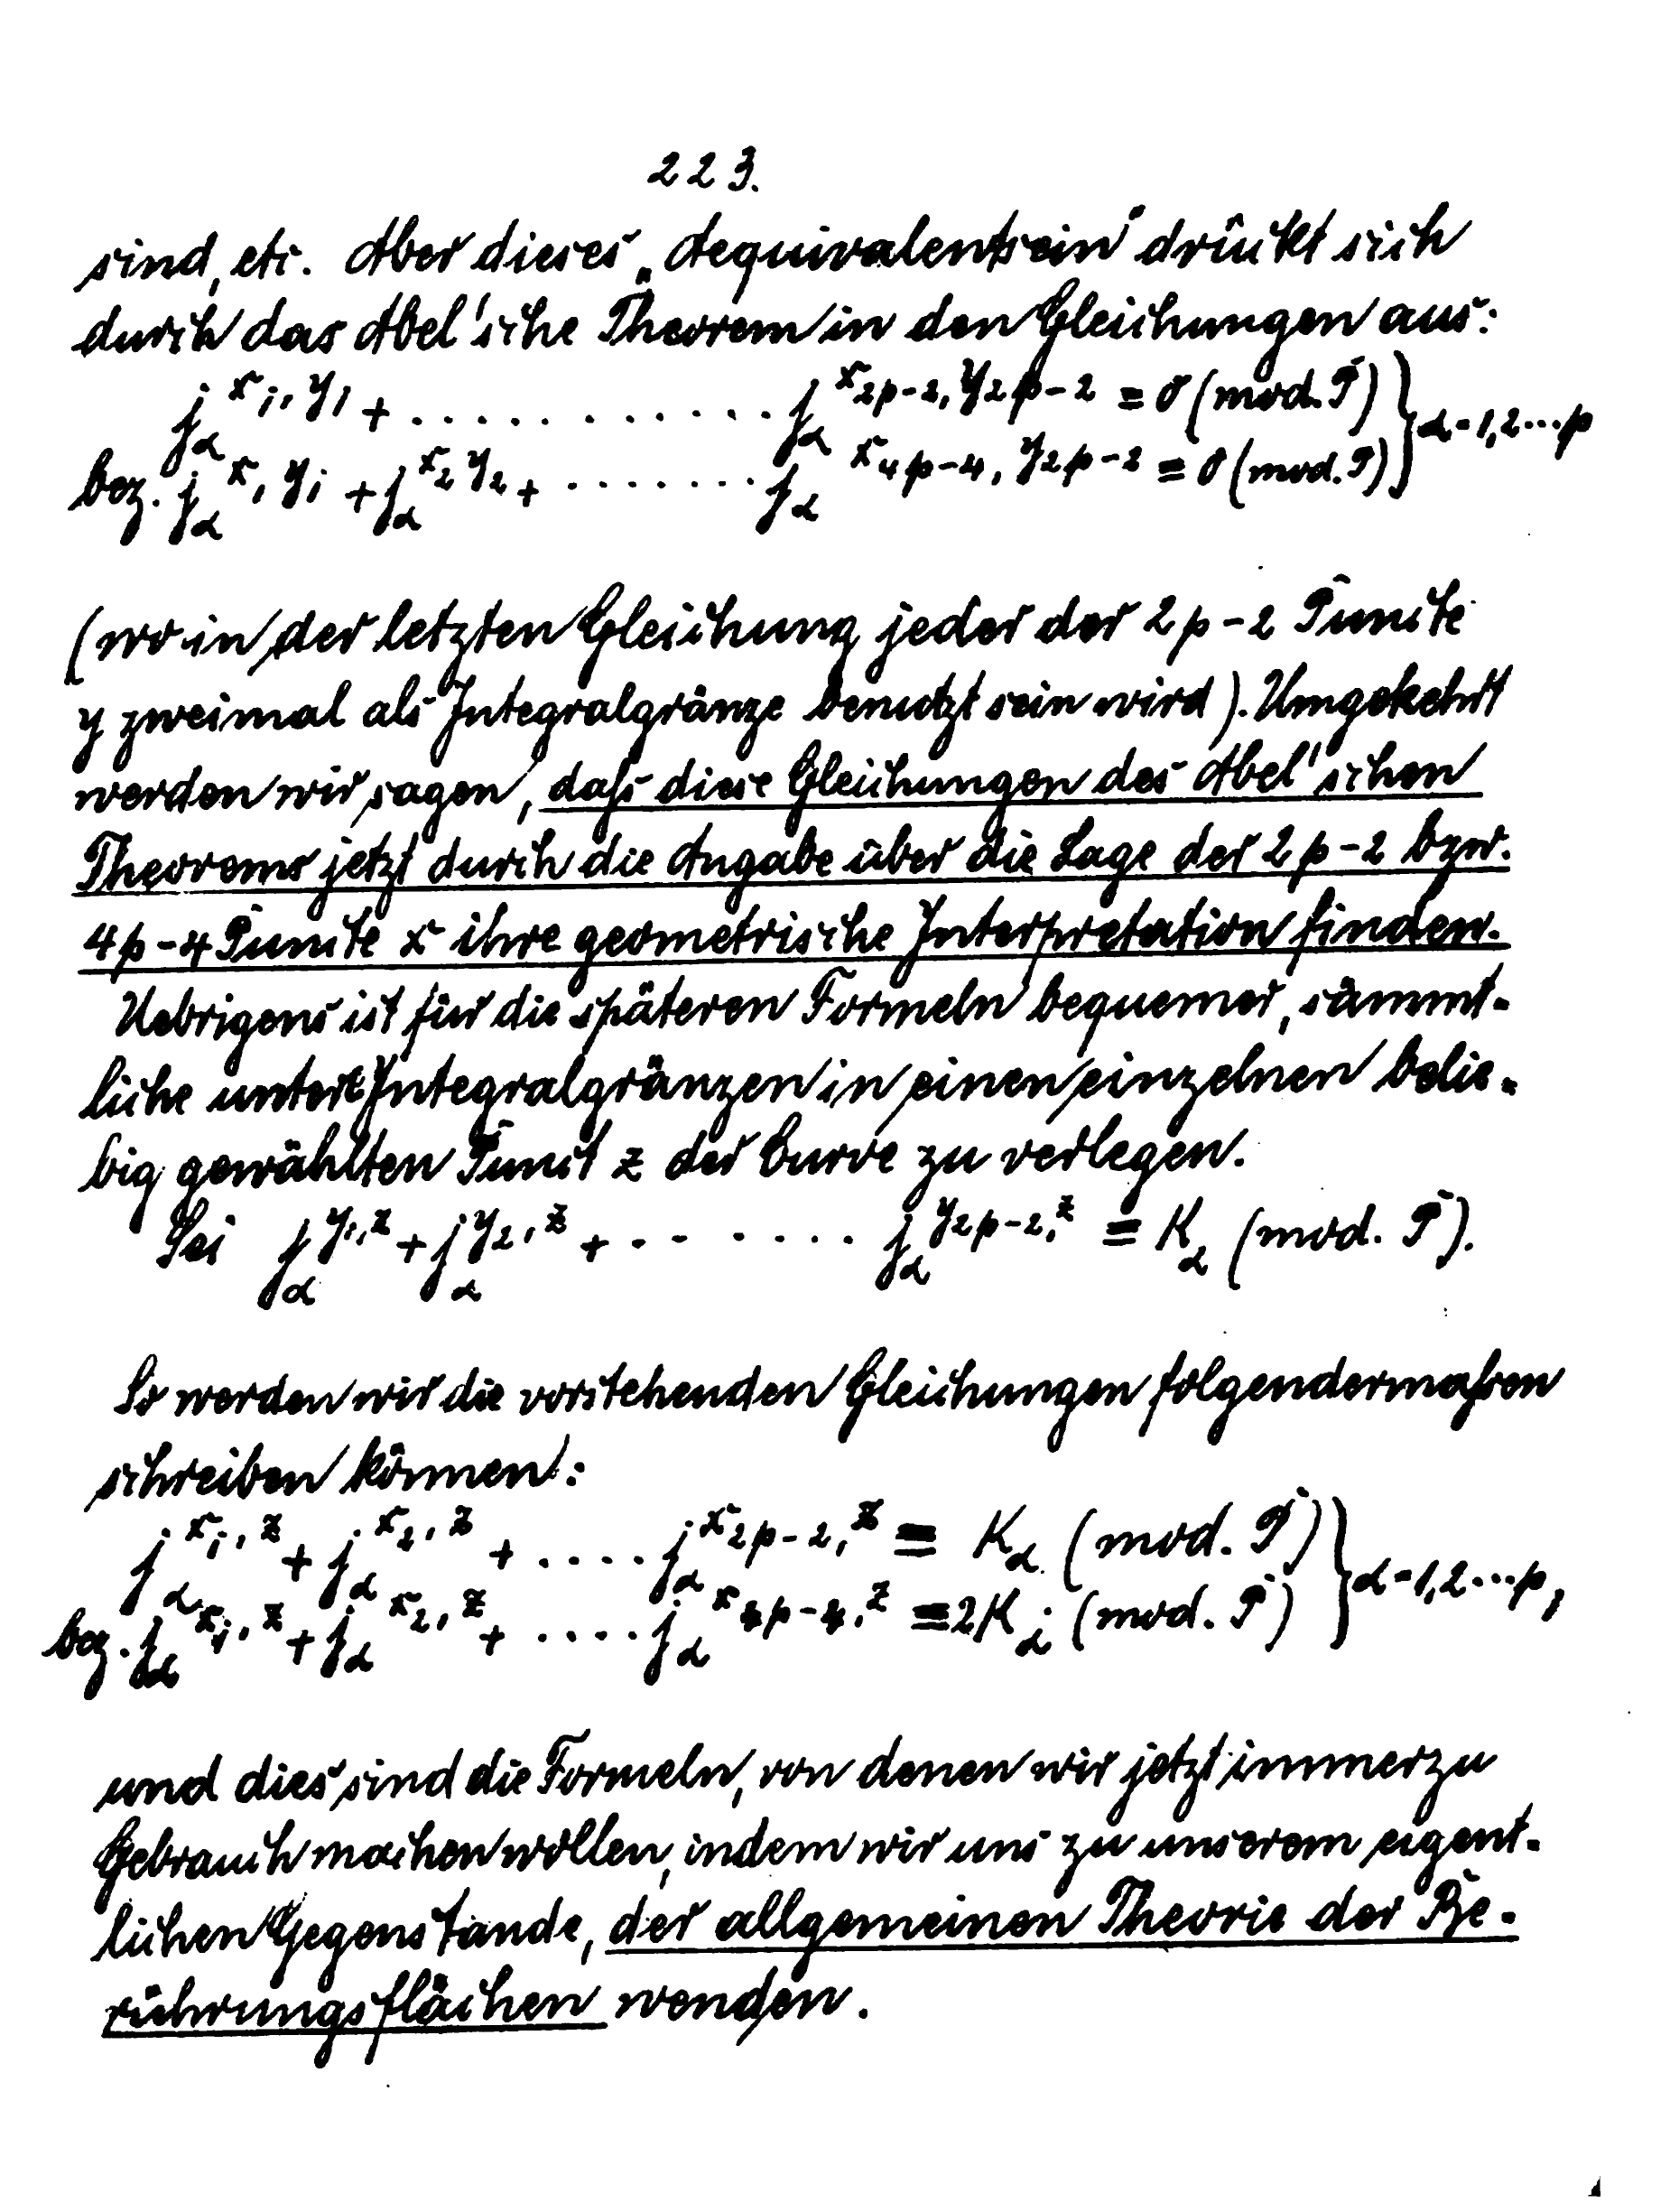 223.
sind, etc. Aber dieses „Aequivalentsein“ drückt sich
durch das Abel'sche Theorem in den Gleichungen aus:
j_α^{x_1, y_1} + ............ j_α^{x_{2p-2}, y_{2p-2}} ≡ 0 (mod. P) } α=1,2...p
bez. j_α^{x_1 y_1} + j_α^{x_2 y_2} + ........ j_α^{x_{4p-4}, y_{2p-2}} ≡ 0 (mod. P) }
(wo in der letzten Gleichung jeder der 2p-2 Puncte
y zweimal als Integralgränze benutzt sein wird). Umgekehrt
werden wir sagen, daſs diese Gleichungen des Abel'schen
Theorems jetzt durch die Angabe über die Lage der 2p-2 bzw.
4p-4 Puncte x ihre geometrische Interpretation finden.
Uebrigens ist für die späteren Formeln bequemer, sämmt-
liche untere Integralgränzen in einen einzelnen belie-
big gewählten Punct z der Curve zu verlegen.
Sei j_α^{y_1, z} + j_α^{y_2, z} + ........ j_α^{y_{2p-2}, z} ≡ K_α (mod. P).
So werden wir die vorstehenden Gleichungen folgendermaſsen
schreiben können:
j_α^{x_1, z} + j_α^{x_2, z} + .... j_α^{x_{2p-2}, z} ≡ K_α (mod. P) } α=1,2...p,
bez. j_α^{x_1, z} + j_α^{x_2, z} + .... j_α^{x_{4p-4}, z} ≡ 2K_α (mod. P) }
und dies sind die Formeln, von denen wir jetzt immerzu
Gebrauch machen wollen, indem wir uns zu unserem eigent-
lichen Gegenstande, der allgemeinen Theorie der Be-
rührungsflächen wenden.